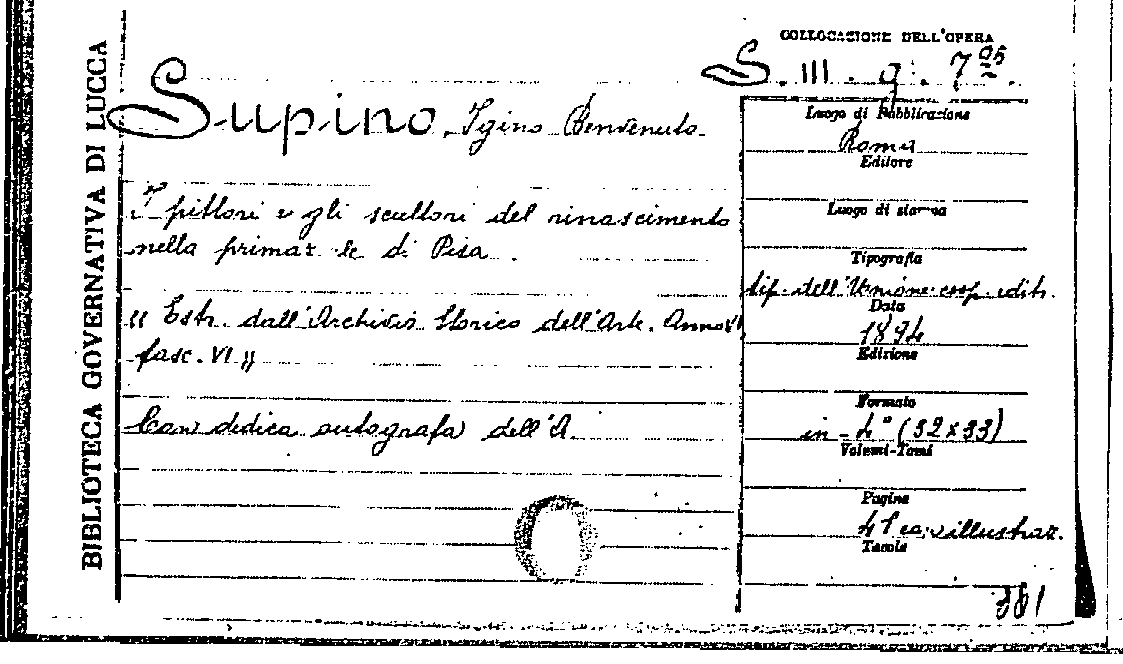 BIBLIOTECA GOVERNATIVA DI LUCCA
COLLOCAZIONE DELL'OPERA
S. III. q. 7
Supino, Igino Benvenuto.
I pittori e gli scultori del rinascimento
nella primaziale di Pisa.
"Estr. dall'Archivio Storico dell'Arte. Anno VI,
fasc. VI"
Con dedica autografa dell'A.
Luogo di Pubblicazione
Roma
Editore
Luogo di stampa
Tipografia
tip. dell'Unione coop. editr.
Data
1894
Edizione
Formato
in-4° (32x33)
Volumi-Tomi
Pagine
illustraz.
Tavole
381